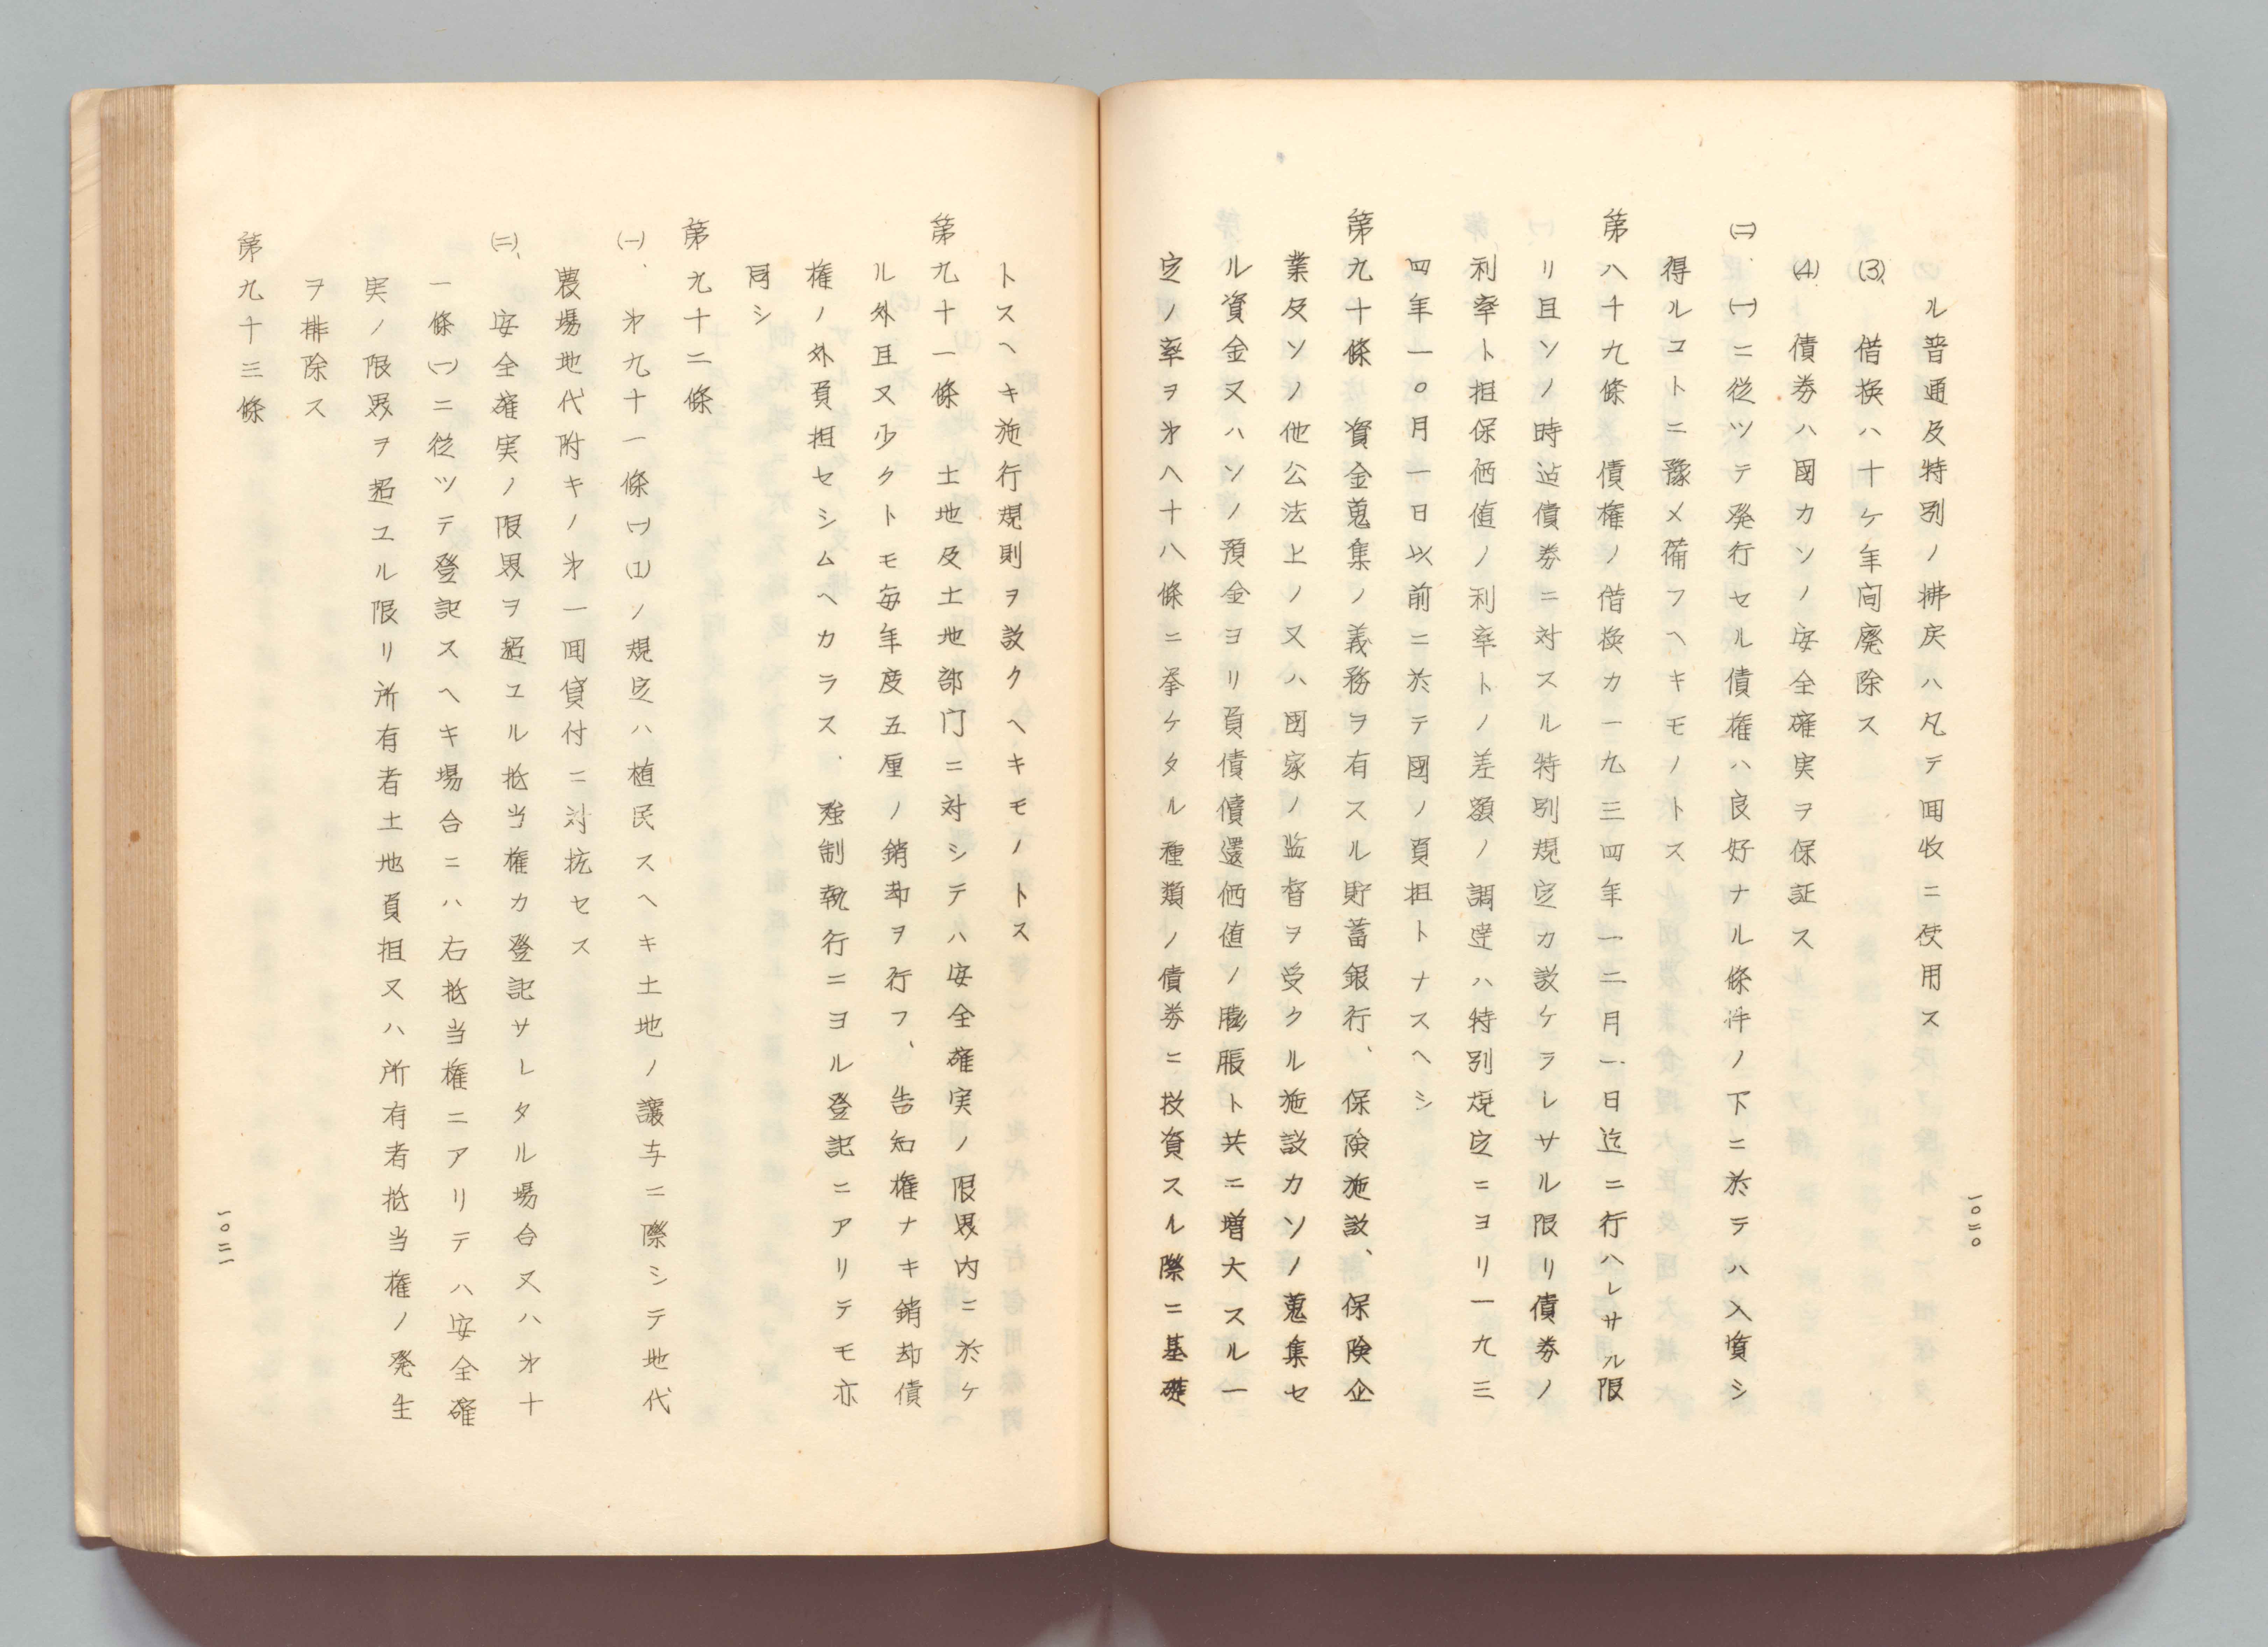 ル普通及特別ノ拂戻ハ凡テ囬收ニ使用ス
(3)、借換ハ十ケ年间廃除ス
(4)、債券ハ國カソノ安全確実ヲ保証ス
(二)、(一)ニ從ツテ発行セル債権ハ良好ナル條件ノ下ニ於テハ入質シ
得ルコトニ豫メ備フヘキモノトス
第八十九條 債権ノ借換カ一九三四年一二月一日迄ニ行ハレサル限
リ且ソノ時迠債券ニ対スル特別規定カ設ケラレサル限リ債券ノ
利率ト担保価値ノ利率トノ差額ノ調達ハ特別規定ニヨリ一九三
四年一〇月一日以前ニ於テ國ノ負担トナスヘシ
第九十條 資金蒐集ノ義務ヲ有スル貯蓄銀行、保険施設、保険企
業及ソノ他公法上ノ又ハ国家ノ监督ヲ受クル施設カソノ蒐集セ
ル資金又ハソノ預金ヨリ負債償還価値ノ膨脹ト共ニ増大スル一
定ノ率ヲ㐧八十八條ニ挙ケタル種類ノ債券ニ投資スル際ニ基礎
一〇二〇
トスヘキ施行規則ヲ設クヘキモノトス
第九十一條 土地及土地部门ニ対シテハ安全確実ノ限界内ニ於ケ
ル外且又少クトモ毎年度五厘ノ銷却ヲ行フ、告知権ナキ銷却債
権ノ外負担セシムヘカラス、強制執行ニヨル登記ニアリテモ亦
同シ
第九十二條
(一)、㐧九十一條(一)(1)ノ規定ハ植民スヘキ土地ノ譲与ニ際シテ地代
農場地代附キノ㐧一囬貸付ニ対抗セス
(二)、安全確実ノ限界ヲ超ユル抵当権カ登記サレタル場合又ハ㐧十
一條(一)ニ從ツテ登記スヘキ場合ニハ右抵当権ニアリテハ安全確
実ノ限界ヲ超ユル限リ所有者土地負担又ハ所有者抵当権ノ発生
ヲ排除ス
第九十三條
一〇二一